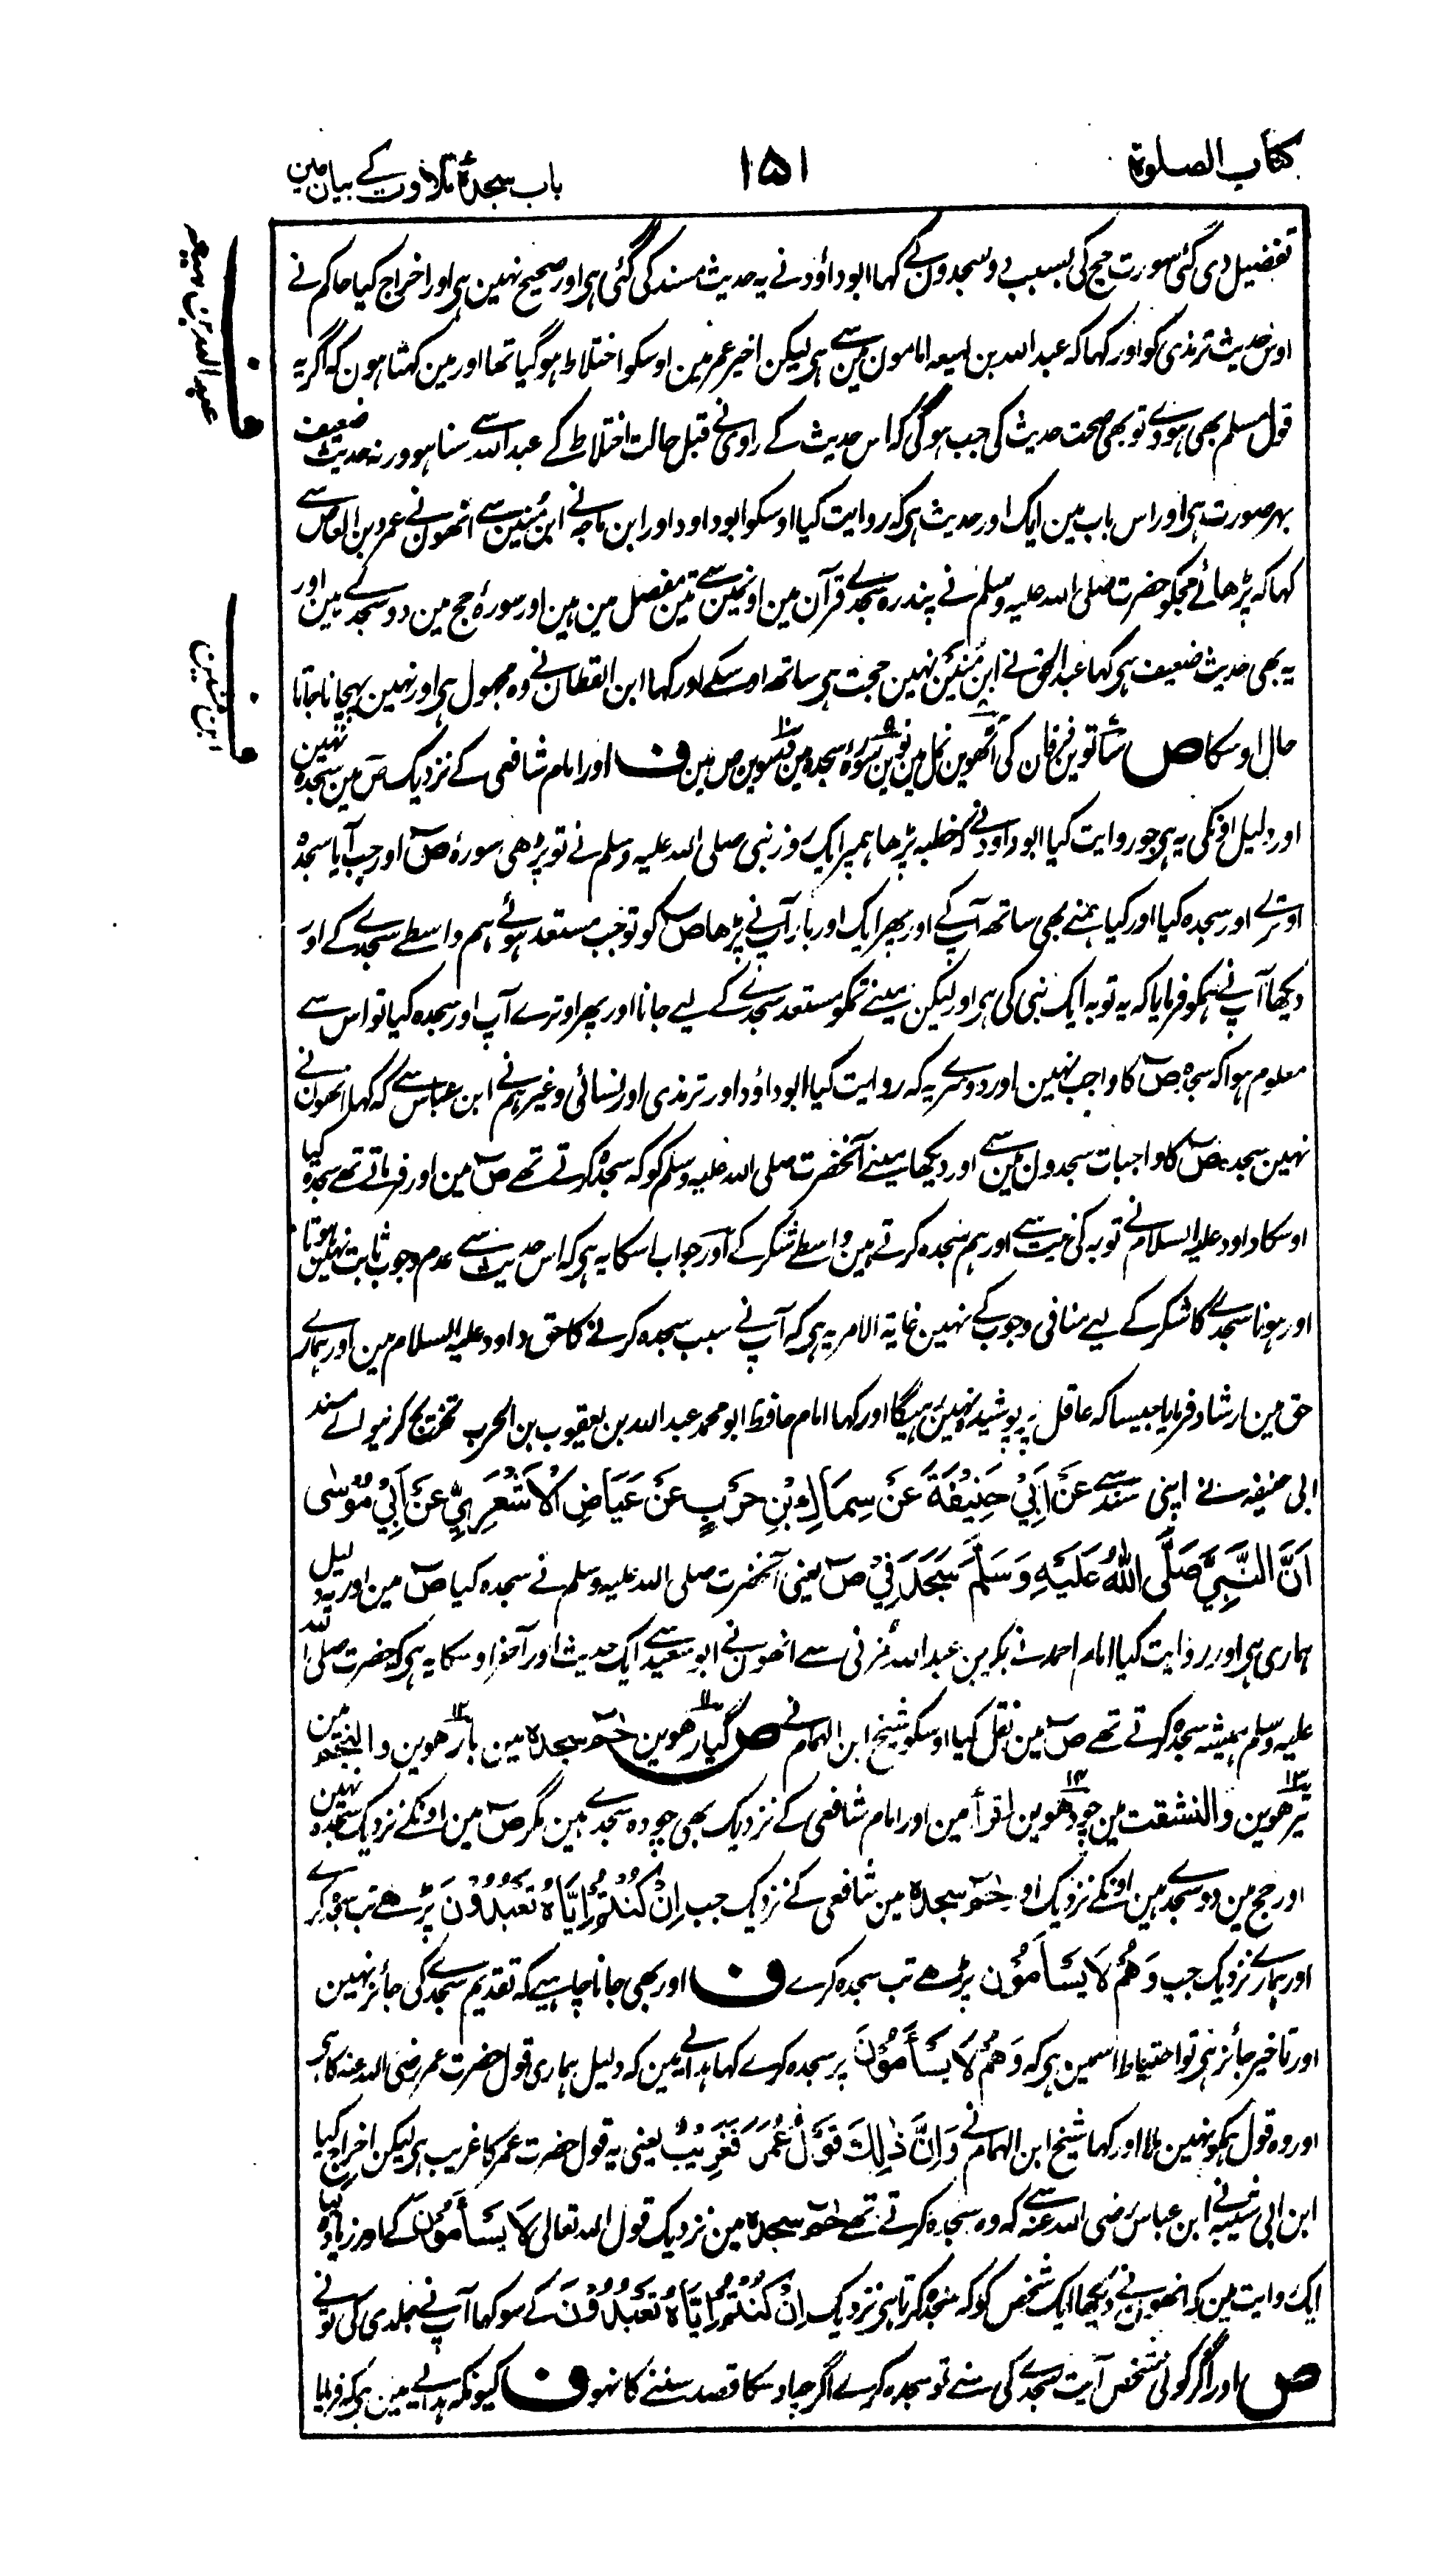 کتاب الصلوة
۱۵۱
باب سجدۂ تلاوت کے بیان مین
تفضیل دی گئی سورت حج کی بسبب دو سجدون کے کہا ابوداؤد نے یہ حدیث مسند کی گئی ہی اور صحیح نہین ہی اور اخراج کیا حاکم نے
اوس حدیث ترمذی کو اور کہا کہ عبد اللہ بن لہیعہ امامون مین سے ہی لیکن اخیر عمر مین اوسکو اختلاط ہو گیا تھا اور مین کہتا ہون کہ اگر یہ
قول مسلم بھی ہووے تو بھی صحت حدیث کی جب ہو گی کہ اس حدیث کے راوی نے قبل حالت اختلاط کے عبد اللہ سے سنا ہو ورنہ حدیث ضعیف
بہر صورت ہی اور اس باب مین ایک اور حدیث ہی کہ روایت کیا اوسکو ابوداود اور ابن ماجہ نے ابن مُنَین سے انھون نے عمرو بن العاص سے
کہا کہ پڑھائے مجکو حضرت صلی اللہ علیہ وسلم نے پندرہ سجدے قرآن مین اونمین سے تین مفصل مین ہین اور سورۂ حج مین دو سجدے ہین اور
یہ بھی حدیث ضعیف ہی کہا عبد الحق نے ابن مُنَین نہین حجت ہی ساتھ اوسکے اور کہا ابن القطان نے وہ مجہول ہی اور نہین پہچانا جاتا
حال اوسکا ص ساتوین فرقان کی آٹھوین نمل مین نوین سورۂ سجدہ مین دسوین ص مین ف اور امام شافعی کے نزدیک ص مین سجدہ نہین
اور دلیل اونکی یہ ہی جو روایت کیا ابوداود نے کہ خطبہ پڑھا ہمپر ایک روز نبی صلی اللہ علیہ وسلم نے تو پڑھی سورۂ ص اور جب آیا سجدہ
اوترے اور سجدہ کیا اور کیا ہمنے بھی ساتھ آپ کے اور پھر ایک اور بار آپ نے پڑھا ص کو تو جب مستعد ہوئے ہم واسطے سجدے کے اور
دیکھا آپ نے ہمکو فرمایا کہ یہ توبہ ایک نبی کی ہی اور لیکن مینے تمکو مستعد سجدے کے لیے جانا اور پھر اوترے آپ اور سجدہ کیا تو اس سے
معلوم ہوا کہ سجدہ ص کا واجب نہین اور دوسرے یہ کہ روایت کیا ابوداؤد اور ترمذی اور نسائی وغیرہم نے ابن عباس سے کہ کہا انھون نے
نہین سجدہ ص کا واجبات سجدون مین سے اور دیکھا مینے آنحضرت صلی اللہ علیہ وسلم کو کہ سجدہ کرتے تھے ص مین اور فرماتے تھے سجدہ کیا
اوسکا داود علیہ السلام نے توبہ کی جہت سے اور ہم سجدہ کرتے ہین واسطے شکر کے اور جواب اسکا یہ ہی کہ اس حدیث سے عدم وجوب ثابت نہین ہوتا
اور ہونا سجدے کا شکر کے لیے منافی وجوب کے نہین غایۃ الامر یہ ہی کہ آپ نے سبب سجدہ کرنے کا حق داود علیہ السلام مین اور ہمارے
حق مین ارشاد فرمایا جیسا کہ عاقل پر پوشیدہ نہین رہیگا اور کہا امام حافظ ابو محمد عبد اللہ بن یعقوب بن الحرب تخریج کرنیوالے مسند
ابی حنیفہ نے اپنی سند سے عَنْ اَبِيْ حَنِيْفَةَ عَنْ سِمَاكِ بْنِ حَرْبٍ عَنْ عَيَاضِ الْاَشْعَرِيِّ عَنْ اَبِيْ مُوْسٰى
اَنَّ النَّبِيَّ صَلَّى اللهُ عَلَيْهِ وَسَلَّمَ سَجَدَ فِيْ ص یعنی آنحضرت صلی اللہ علیہ وسلم نے سجدہ کیا ص مین اور یہ دلیل
ہماری ہی اور روایت کیا امام احمد نے بکر بن عبد اللہ مُزنی سے انھون نے ابو سعید سے ایک حدیث اور آخر اوسکا یہ ہی کہ حضرت صلی اللہ
علیہ وسلم ہمیشہ سجدہ کرتے تھے ص مین نقل کیا اوسکو شیخ ابن الہمام نے ص گیارھوین حم سجدہ مین بارھوین والنجم مین
تیرھوین والنشقت مین چودھوین اقرأ مین اور امام شافعی کے نزدیک بھی چودہ سجدے ہین مگر ص مین اونکے نزدیک سجدہ نہین
اور حج مین دو سجدے ہین اونکے نزدیک اور حم سجدہ مین شافعی کے نزدیک جب اِنْ كُنْتُمْ اِيَّاهُ تَعْبُدُوْنَ پڑھے تب سجدہ کرے
اور ہمارے نزدیک جب وَهُمْ لَا يَسْاَمُوْن پڑھے تب سجدہ کرے ف اور بھی جانا چاہیے کہ تقدیم سجدے کی جائز نہین
اور تاخیر جائز ہی تو احتیاط اسمین ہی کہ وَهُمْ لَا يَسْأَمُوْنَ پر سجدہ کرے کہا ہدایے مین کہ دلیل ہماری قول حضرت عمر رضی اللہ عنہ کا ہی
اور وہ قول ہمکو نہین ملا اور کہا شیخ ابن الہمام نے وَاِنَّ ذٰلِكَ قَوْلُ عُمَرَ فَغَرِيْبٌ یعنی یہ قول حضرت عمر کا غریب ہی لیکن اخراج کیا
ابن ابی شیبہ نے ابن عباس رضی اللہ عنہ سے کہ وہ سجدہ کرتے تھے حم سجدہ مین نزدیک قول اللہ تعالی لَا يَسْأَمُوْنَ کے اور زیادہ کیا
ایک روایت مین کہ انھون نے دیکھا ایک شخص کو کہ سجدہ کرتا ہی نزدیک اِنْ كُنْتُمْ اِيَّاهُ تَعْبُدُوْنَ کے سو کہا آپ نے جلدی کی تو نے
ص اور اگر کوئی شخص آیت سجدے کی سنے تو سجدہ کرے اگرچہ اوسکا قصد سننے کا نہو ف کیونکہ ہدایے مین ہی کہ فرمایا
ف عبد اللہ بن لہیعہ
ف ابن منین